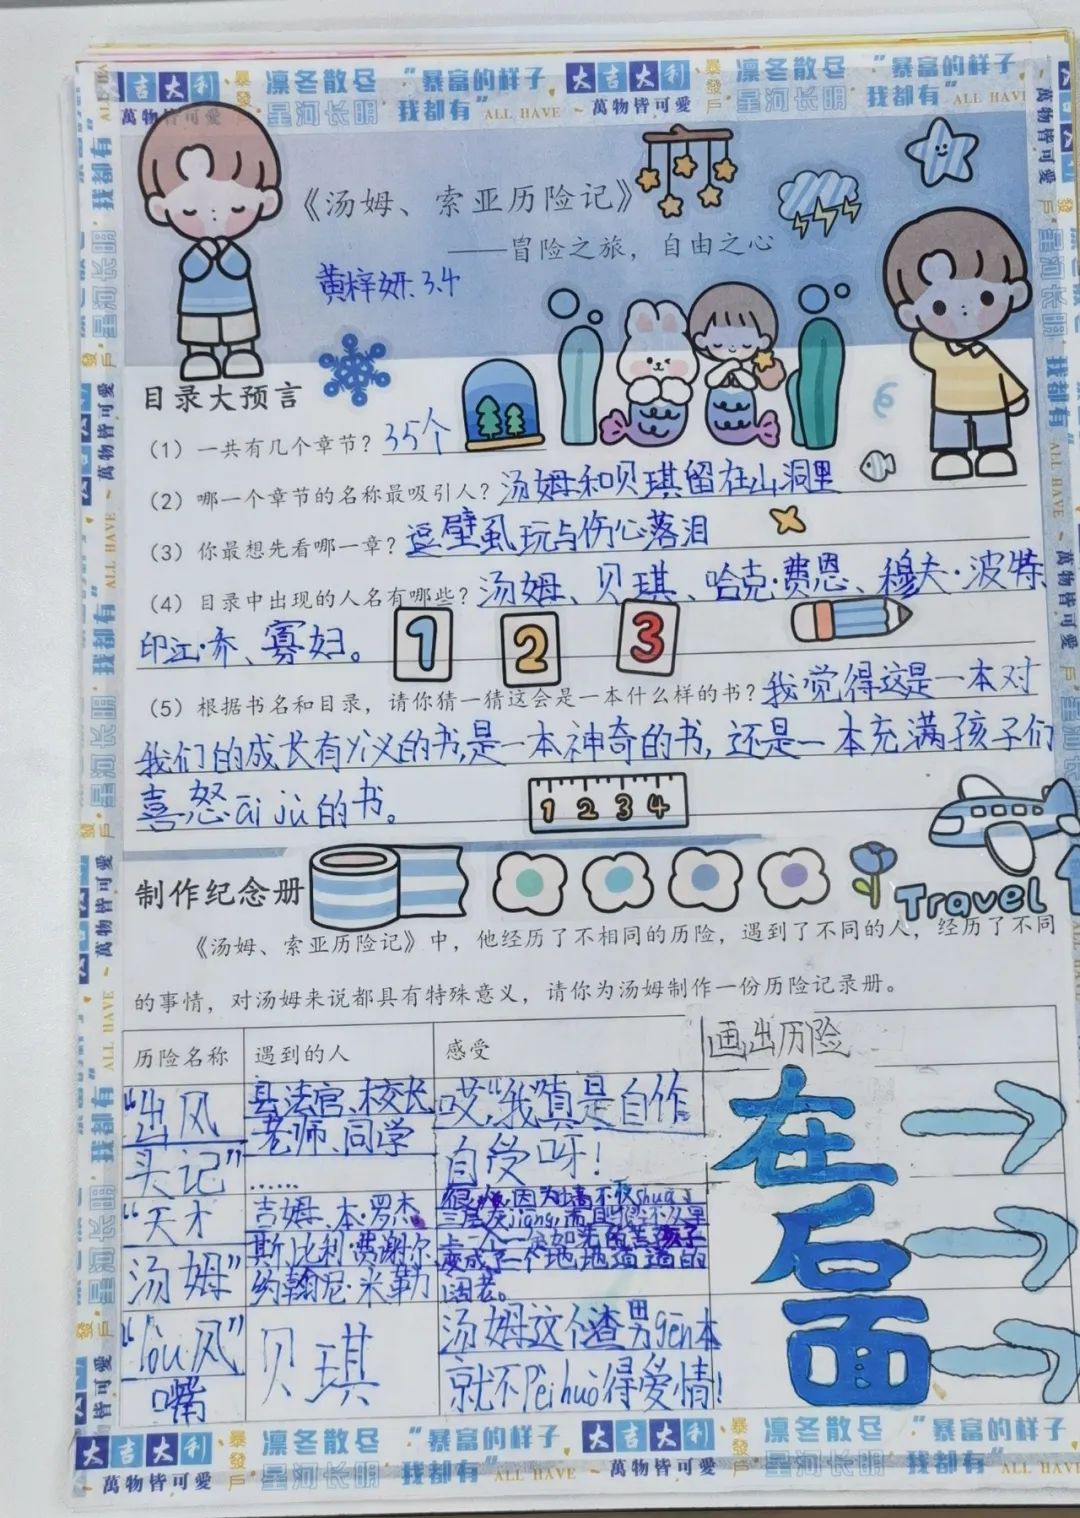 大吉大利 暴發戶 凛冬散尽 “暴富的样子 大吉大利 暴發戶 凛冬散尽 “暴富的样子
萬物皆可愛 星河长明 我都有” ALL HAVE ~ 萬物皆可愛 星河长明 我都有” ALL HAVE
《汤姆、索亚历险记》
——冒险之旅，自由之心
黄梓妍.3.4
目录大预言
（1）一共有几个章节？35个
（2）哪一个章节的名称最吸引人？汤姆和贝琪留在山洞里
（3）你最想先看哪一章？逗壁虱玩与伤心落泪
（4）目录中出现的人名有哪些？汤姆、贝琪、哈克·费恩、穆夫·波特、
印江·乔、寡妇。
1 2 3
（5）根据书名和目录，请你猜一猜这会是一本什么样的书？我觉得这是一本对
我们的成长有yì义的书,是一本神奇的书,还是一本充满孩子们
喜怒āi jù的书。
1 2 3 4
制作纪念册
Travel
《汤姆、索亚历险记》中，他经历了不相同的历险，遇到了不同的人，经历了不同
的事情，对汤姆来说都具有特殊意义，请你为汤姆制作一份历险记录册。
历险名称 遇到的人 感受 画出历险
“出风头记” 县法官、校长老师、同学…… 哎,“我”真是自作自受呀！
“天才汤姆” 吉姆、本·罗杰斯、比利·费谢尔、约翰尼·米勒
变成了一个地地道道的
阔老。
“lòu风”嘴 贝琪 汤姆这个渣男gēn本就不Pèi huò得爱情!
在后面
大吉大利 暴發戶 凛冬散尽 “暴富的样子 大吉大利 暴發戶 凛冬散尽 “暴富的样子
萬物皆可愛 星河长明 我都有” ALL HAVE ~ 萬物皆可愛 星河长明 我都有” ALL HAVE